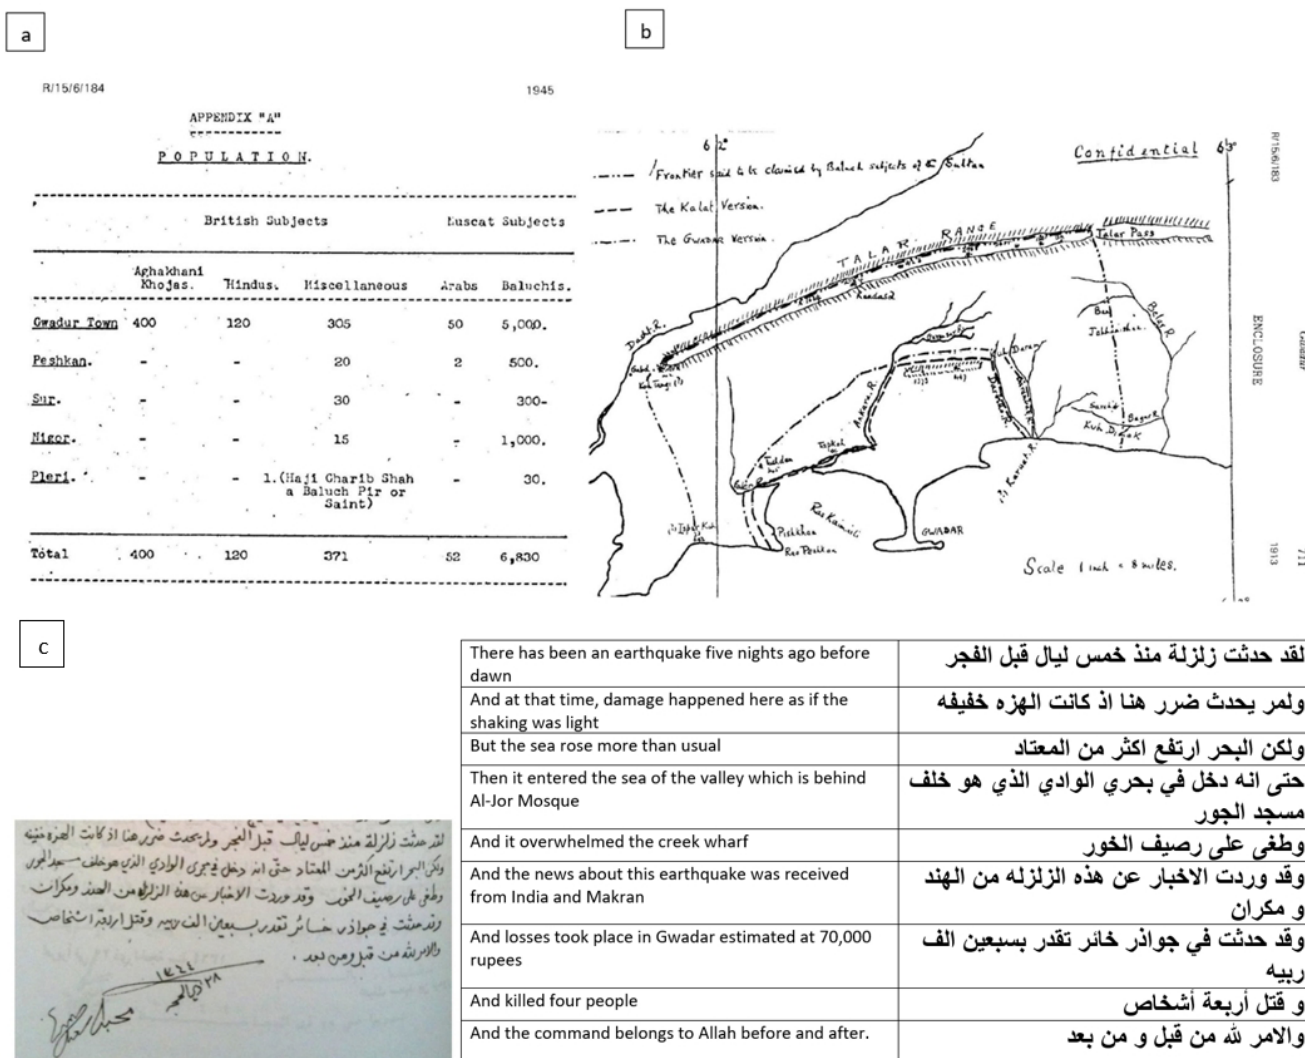 a
R/15/6/184 1945
APPENDIX "A"
POPULATION.
British Subjects Muscat Subjects
Aghakhani Khojas. Hindus. Miscellaneous Arabs Baluchis.
Gwadur Town 400 120 305 50 5,000.
Peshkan. - - 20 2 500.
Sur. - - 30 - 300-
Nigor. - - 15 - 1,000.
Pleri. - - 1.(Haji Gharib Shah a Baluch Pir or Saint) - 30.
Total 400 120 371 52 6,830
b
62°
Confidential 63°
R/15/6/183
Frontier said to be claimed by Baluch subjects of the Sultan
The Kalat Version.
The Gwadar Version.
TALAR RANGE
Talar Pass
Dasht R.
Ankara R.
Kuh Daran
Pishkhan
Ras Peshkan
GWADAR
Scale 1 inch = 8 miles.
ENCLOSURE
1913
711
c
لقد حدثت زلزلة منذ خمس ليال قبل الفجر ولم يحدث ضرر هنا اذ كانت الهزه خفيفه
ولكن البحر ارتفع أكثر من المعتاد حتى انه دخل في مجرى الوادي الذي هو خلف مسجد الجور
وطغى على رصيف الخور وقد وردت الاخبار عن هذه الزلزله من الهند ومكران
وقد حدثت في جواذر خسائر تقدر بسبعين الف ربيه وقتل اربعة اشخاص
والامر لله من قبل ومن بعد .
There has been an earthquake five nights ago before dawn
لقد حدثت زلزلة منذ خمس ليال قبل الفجر
And at that time, damage happened here as if the shaking was light
ولمر يحدث ضرر هنا اذ كانت الهزه خفيفه
But the sea rose more than usual
ولكن البحر ارتفع اكثر من المعتاد
Then it entered the sea of the valley which is behind Al-Jor Mosque
حتى انه دخل في بحري الوادي الذي هو خلف
مسجد الجور
And it overwhelmed the creek wharf
وطغى على رصيف الخور
And the news about this earthquake was received from India and Makran
وقد وردت الاخبار عن هذه الزلزله من الهند
و مكران
And losses took place in Gwadar estimated at 70,000 rupees
وقد حدثت في جواذر خائر تقدر بسبعين الف
ربيه
And killed four people
و قتل أربعة أشخاص
And the command belongs to Allah before and after.
والامر لله من قبل و من بعد